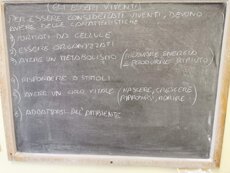 GLI ESSERI VIVENTI
PER ESSERE CONSIDERATI VIVENTI, DEVONO
AVERE DELLE CARATTERISTICHE:
1) FORMATI DA CELLULE
2) ESSERE ORGANIZZATI
3) AVERE UN METABOLISMO
4) RISPONDERE A STIMOLI
5) AVERE UN CICLO VITALE (NASCERE, CRESCERE
RIPRODURSI, MORIRE)
6) ADATTARSI ALL'AMBIENTE